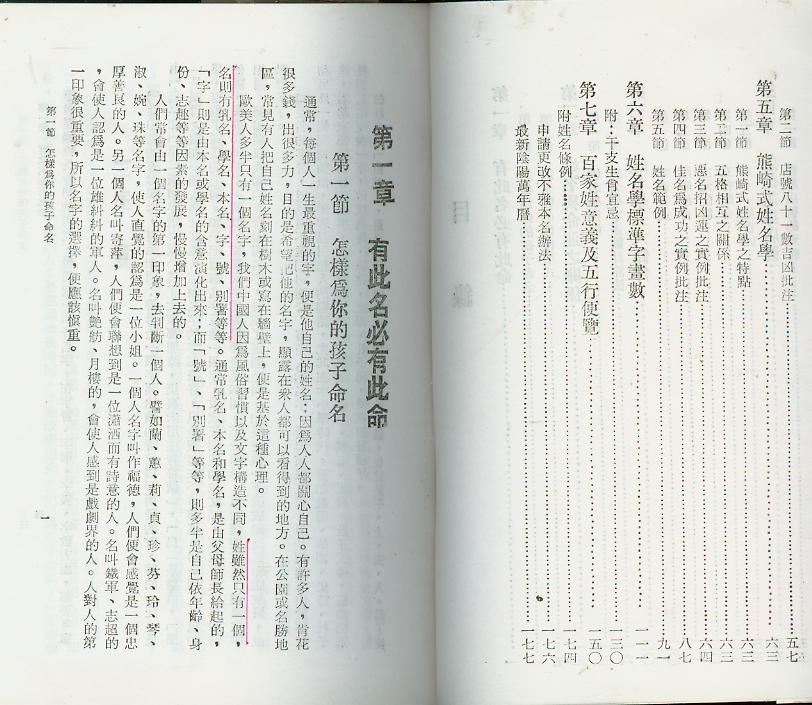 第二節　店號八十一數吉凶批注……五七
第五章　熊崎式姓名學……六三
第一節　熊崎式姓名學之特點……六三
第二節　五格相互之關係……六三
第三節　惡名招凶運之實例批注……六四
第四節　佳名爲成功之實例批注……八七
第五節　姓名範例……九一
附：干支生肖宜忌
第六章　姓名學標準字畫數……一一一
第七章　百家姓意義及五行便覽……一三〇
附姓名條例……一五〇
申請更改不雅本名辦法……一七四
最新陰陽萬年曆……一七六
一七七
第一章　有此名必有此命
第一節　怎樣爲你的孩子命名
通常，每個人一生最重視的字，便是他自己的姓名；因爲人人都關心自己。有許多人，肯花
很多錢，出很多力，目的是希望把他的名字，顯露在衆人都可以看得到的地方。在公園或名勝地
區，常見有人把自己姓名刻在樹木或寫在牆壁上，便是基於這種心理。
歐美人多半只有一個名字，我們中國人因爲風俗習慣以及文字構造不同，姓雖然只有一個，
名則有乳名、學名、本名、字、號、別署等等。通常乳名、本名和學名，是由父母師長給起的，
「字」則是由本名或學名的含意演化出來；而「號」、「別署」等等，則多半是自己依年齡、身
份、志趣等等因素的發展，慢慢增加上去的。
人們常會由一個名字的第一印象，去判斷一個人。譬如蘭、蕙、莉、貞、珍、芬、玲、琴、
淑、婉、珠等名字，使人直覺的認爲是一位小姐。一個人名字叫作福德，人們便會感覺是一個忠
厚善良的人。另一個人名叫寄萍，人們便會聯想到是一位瀟洒而有詩意的人。名叫鐵軍、志超的
，會使人認爲是一位雄糾糾的軍人。名叫艷舫、月樓的，會使人感到是戲劇界的人。人對人的第
一印象很重要，所以名字的選擇，便應該愼重。
第一節　怎樣爲你的孩子命名
一